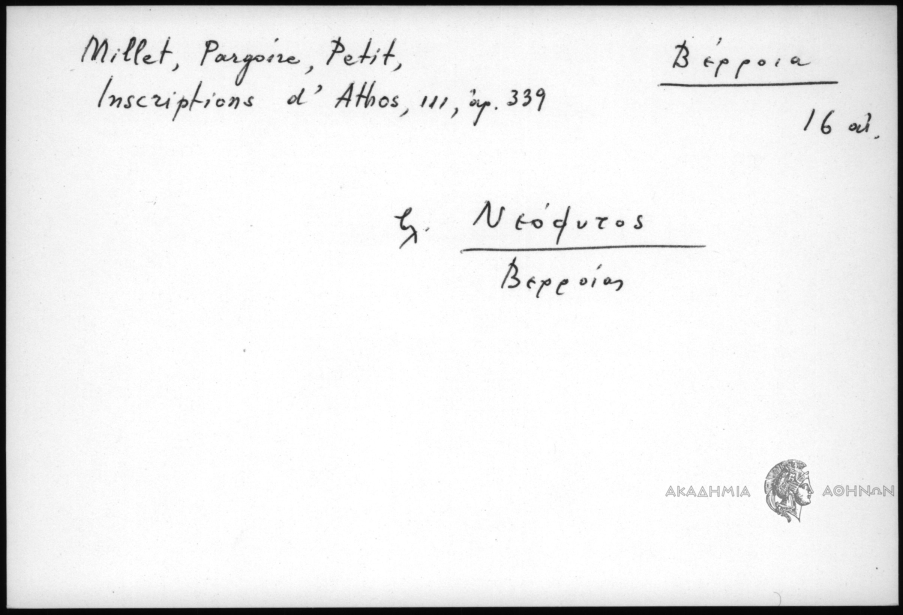 Millet, Pargoire, Petit,
Inscriptions d' Athos, III, ἀρ. 339
Βέρροια
16 αἰ.
Νεόφυτος
Βερροίας
ΑΚΑΔΗΜΙΑ ΑΘΗΝΩΝ